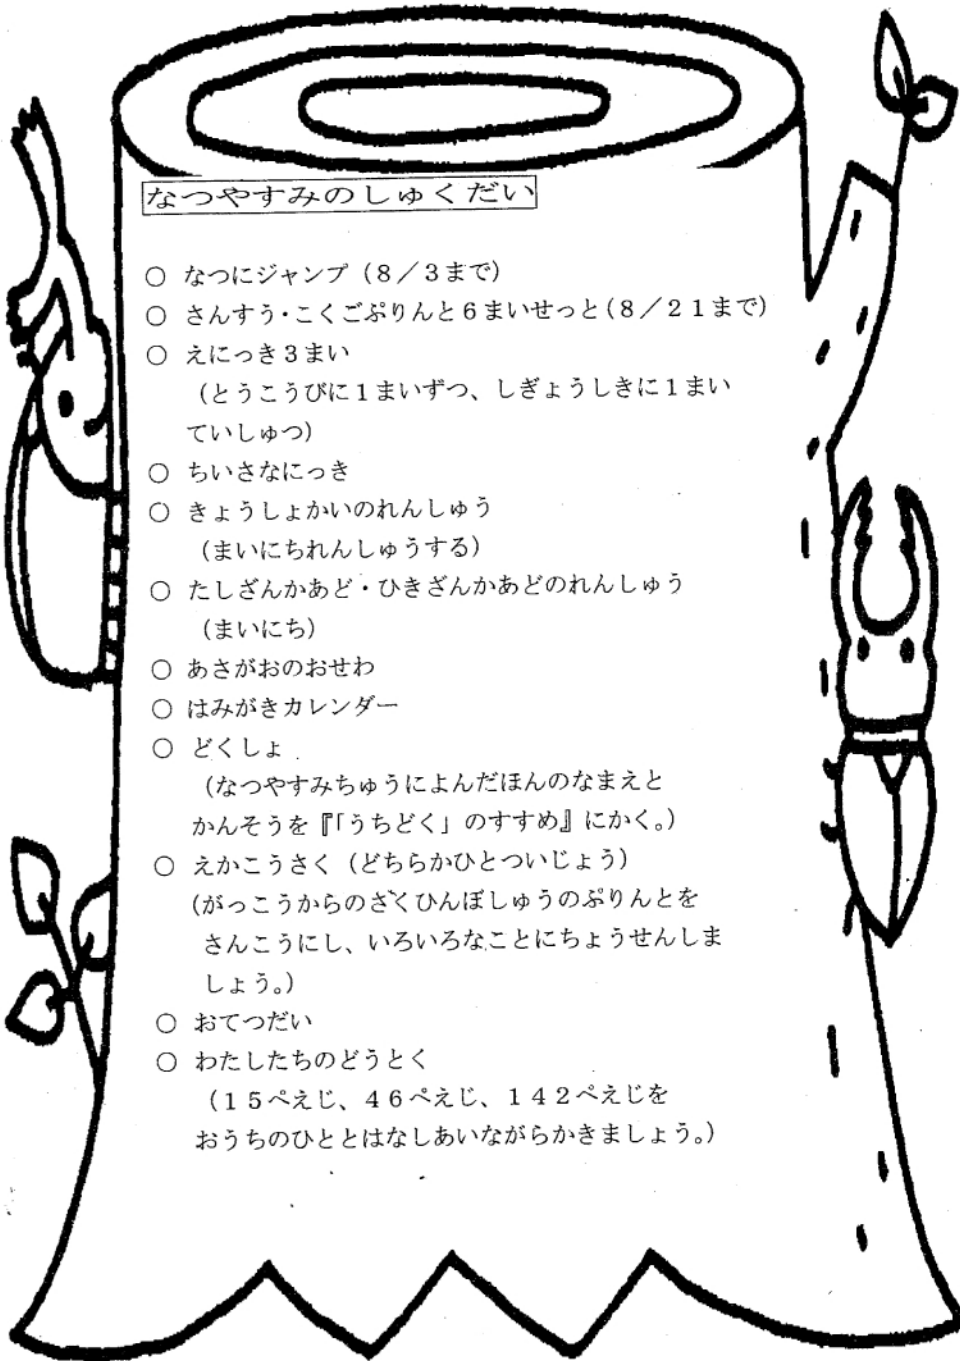 なつやすみのしゅくだい
○ なつにジャンプ（８／３まで）
○ さんすう・こくごぷりんと６まいせっと（８／２１まで）
○ えにっき３まい
（とうこうびに１まいずつ、しぎょうしきに１まい
ていしゅつ）
○ ちいさなにっき
○ きょうしょかいのれんしゅう
（まいにちれんしゅうする）
○ たしざんかあど・ひきざんかあどのれんしゅう
（まいにち）
○ あさがおのおせわ
○ はみがきカレンダー
○ どくしょ
（なつやすみちゅうによんだほんのなまえと
かんそうを『「うちどく」のすすめ』にかく。）
○ えかこうさく（どちらかひとついじょう）
（がっこうからのさくひんぼしゅうのぷりんとを
さんこうにし、いろいろなことにちょうせんしま
しょう。）
○ おてつだい
○ わたしたちのどうとく
（１５ぺえじ、４６ぺえじ、１４２ぺえじを
おうちのひととはなしあいながらかきましょう。）